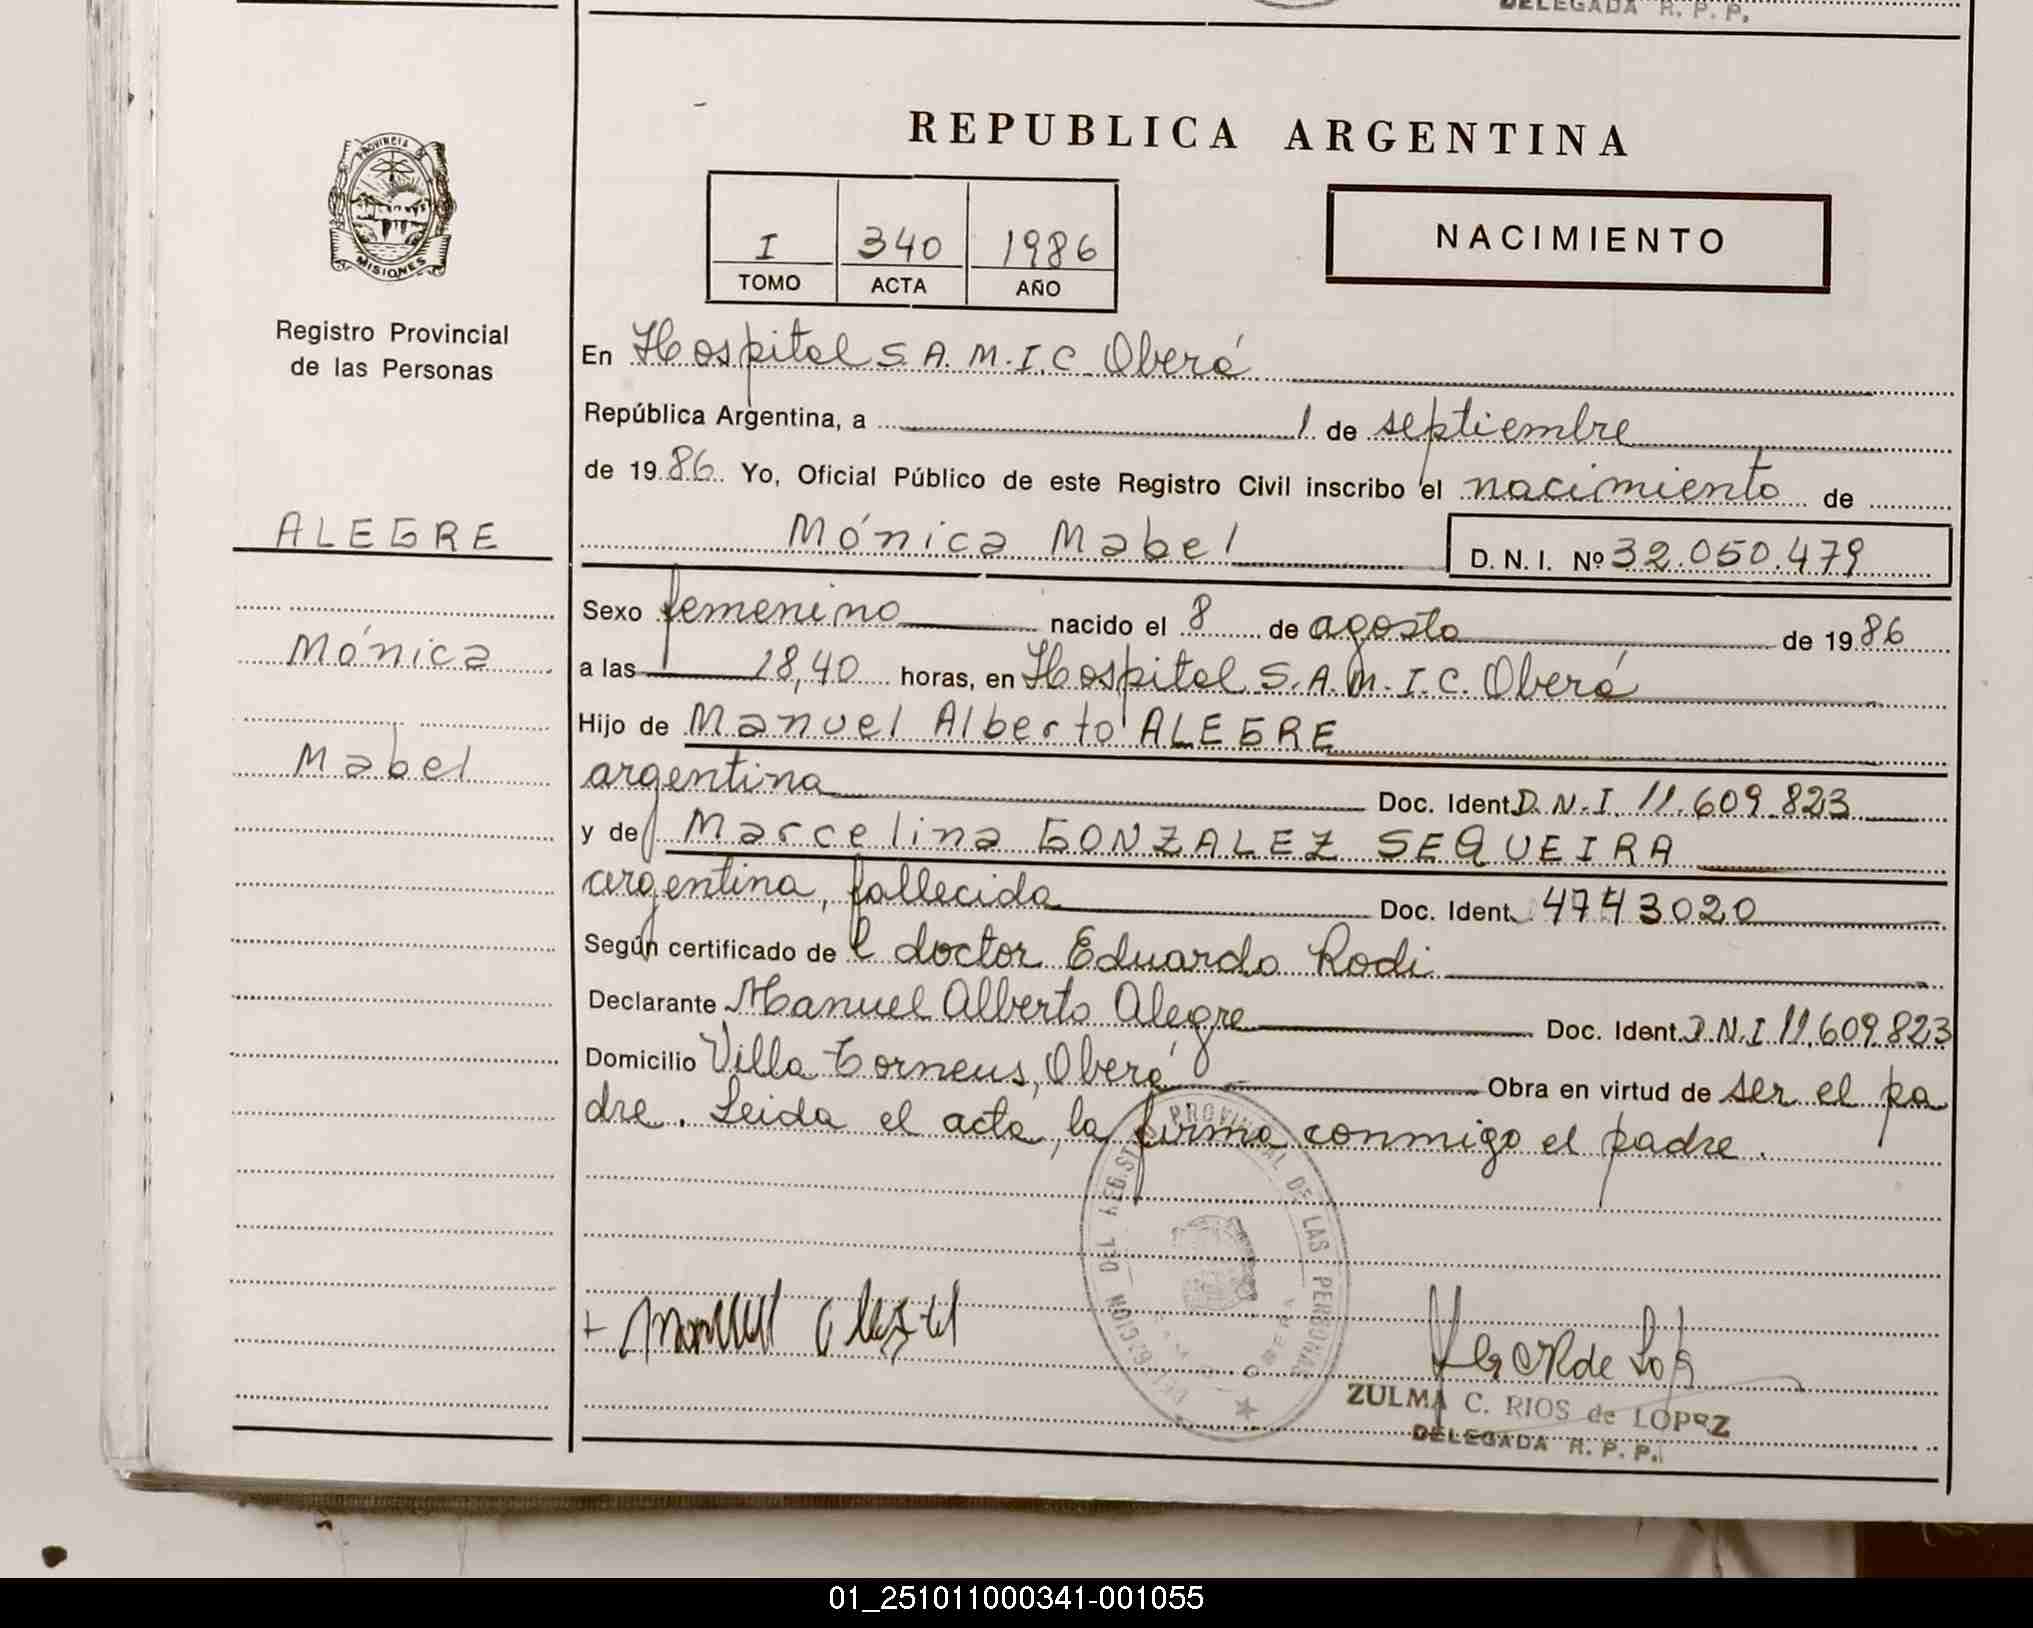 DELEGADA R. P. P.
REPUBLICA ARGENTINA
PROVINCIA DE
MISIONES
I 340 1986
TOMO ACTA AÑO
NACIMIENTO
Registro Provincial
de las Personas
En Hospital S.A.M.I.C. Oberá
República Argentina, a 1 de septiembre
de 1986 Yo, Oficial Público de este Registro Civil inscribo el nacimiento de
ALEGRE
Mónica Mabel D. N. I. Nº 32.050.479
Sexo femenino nacido el 8 de agosto de 1986
Mónica
a las 18,40 horas, en Hospital S.A.M.I.C. Oberá
Hijo de Manuel Alberto ALEGRE
Mabel
argentina Doc. Ident. D.N.I. 11.609.823
y de Marcelina GONZALEZ SEQUEIRA
argentina, fallecida Doc. Ident. 4743020
Según certificado de l doctor Eduardo Rodi
Declarante Manuel Alberto Alegre Doc. Ident. D.N.I 11.609.823
Domicilio Villa Torneus, Oberá Obra en virtud de ser el pa
dre. Leida el acta, la firma conmigo el padre.
PROVINCIAL DE LAS PERSONAS
ZULMA C. RIOS de LOPEZ
DELEGADA R. P. P.
01_251011000341-001055